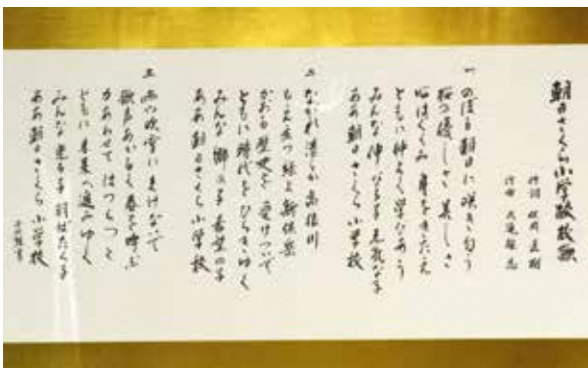 朝日さくら小学校校歌
作詞
作曲
一 のぼる朝日に咲き匂う
桜の優しさ美しさ
心はぐくみ身をきたえ
ともに仲よく学びあう
みんな伸びる子元気な子
ああ朝日さくら小学校
二 ながれ清らか高根川
もえ立つ緑よ新保岳
かおる歴史を受けついで
ともに時代をひらきゆく
みんな郷の子希望の子
ああ朝日さくら小学校
三 の吹雪にまけないで
歌声あかるく春を呼ぶ
力あわせてはつらつと
ともに未来へ進みゆく
みんな光る子羽ばたく子
ああ朝日さくら小学校